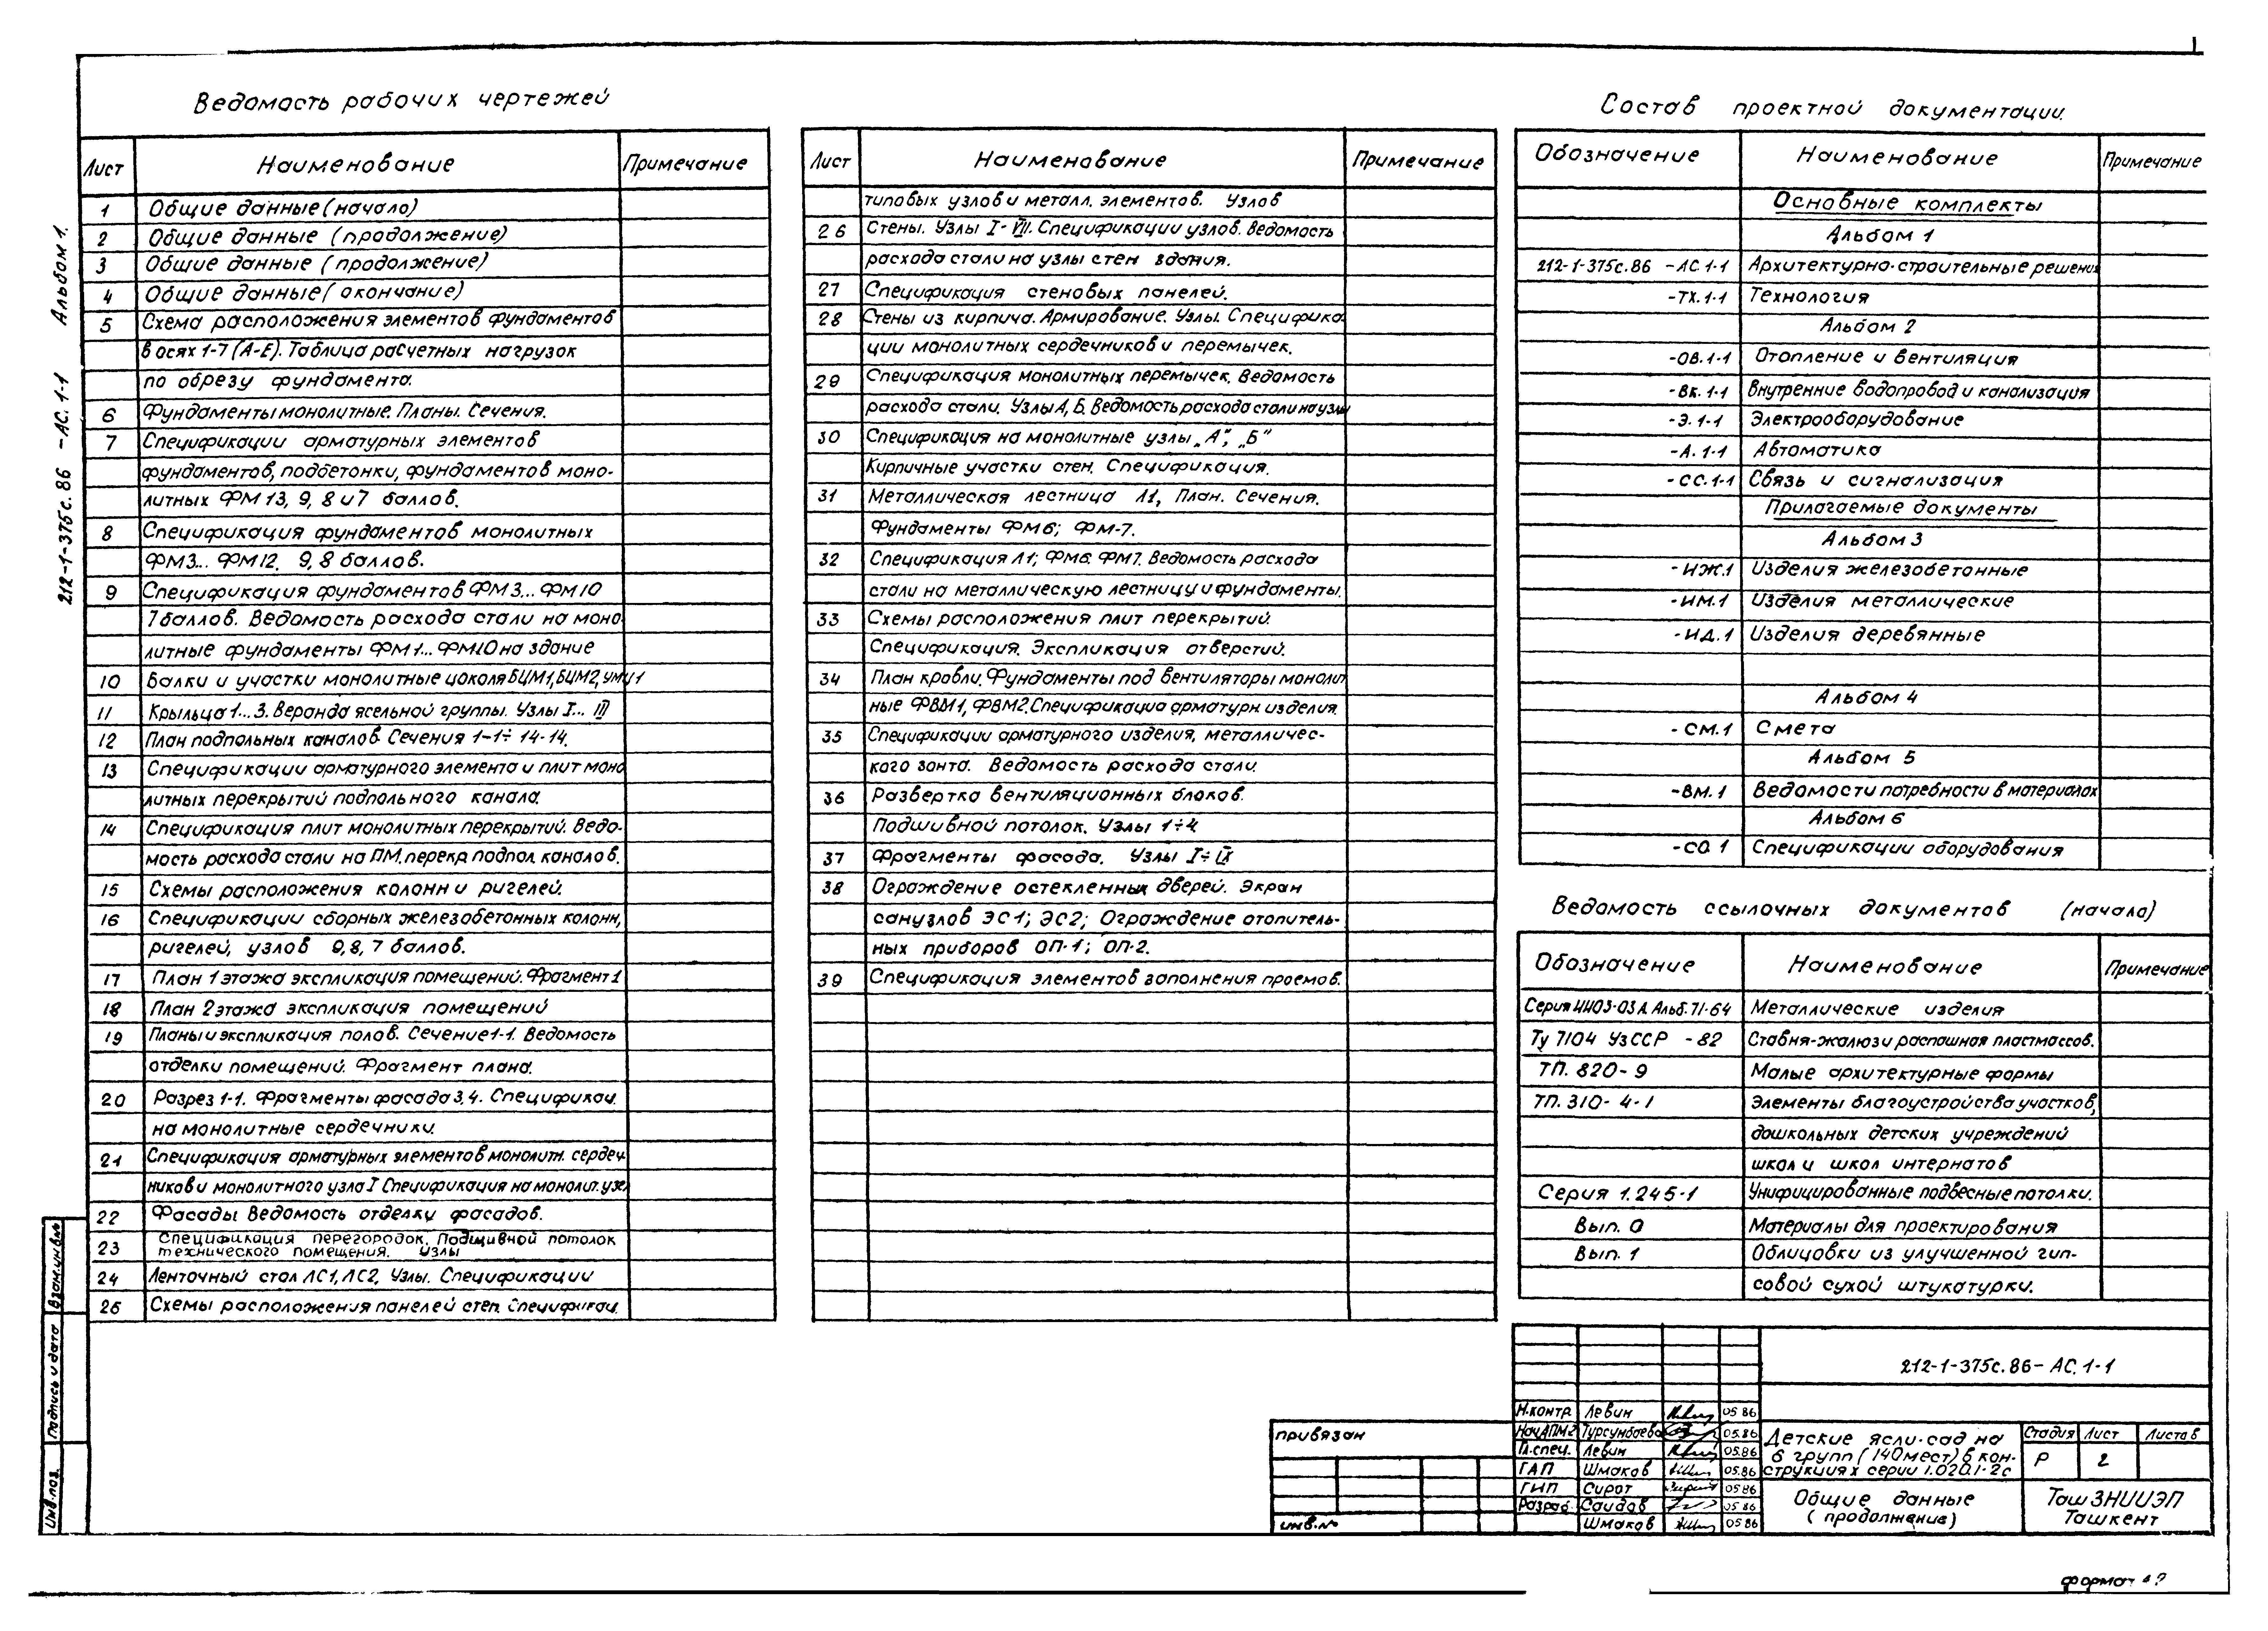 Ведомость рабочих чертежей
Лист Наименование Примечание
1 Общие данные (начало)
2 Общие данные (продолжение)
3 Общие данные (продолжение)
4 Общие данные (окончание)
5 Схема расположения элементов фундаментов
в осях 1-7 (А-Е). Таблица расчетных нагрузок
по обрезу фундамента.
6 Фундаменты монолитные. Планы. Сечения.
7 Спецификации арматурных элементов
фундаментов, подбетонки, фундаментов моно-
литных ФМ13, 9, 8 и 7 баллов.
8 Спецификация фундаментов монолитных
ФМ3... ФМ12. 9,8 баллов.
9 Спецификация фундаментов ФМ3... ФМ10
7 баллов. Ведомость расхода стали на моно
литные фундаменты ФМ1... ФМ10 на здание
10 Балки и участки монолитные цоколя БЦМ1, БЦМ2, УМЦ1
11 Крыльца 1...3. Веранда ясельной группы. Узлы I... III
12 План подпольных каналов. Сечения 1-1÷14-14.
13 Спецификации арматурного элемента и плит моно
литных перекрытий подпольного канала.
14 Спецификация плит монолитных перекрытий. Ведо-
мость расхода стали на ПМ. перекр. подпол. каналов.
15 Схемы расположения колонн и ригелей.
16 Спецификации сборных железобетонных колонн,
ригелей, узлов 9,8,7 баллов.
17 План 1 этажа экспликация помещений. Фрагмент 1
18 План 2 этажа экспликация помещений
19 Планы и экспликация полов. Сечение 1-1. Ведомость
отделки помещений. Фрагмент плана.
20 Разрез 1-1. Фрагменты фасада 3,4. Спецификац.
на монолитные сердечники.
21 Спецификация арматурных элементов монолитн. сердеч
ников и монолитного узла I Спецификация на монолит. узел
22 Фасады Ведомость отделки фасадов.
23 Спецификация перегородок. Подшивной потолок
технического помещения. Узлы
24 Ленточный стол ЛС1, ЛС2. Узлы. Спецификации
25 Схемы расположения панелей стен. Спецификац.
Лист Наименование Примечание
типовых узлов и металл. элементов. Узлов
26 Стены. Узлы I-VII. Спецификации узлов. Ведомость
расхода стали на узлы стен здания.
27 Спецификация стеновых панелей.
28 Стены из кирпича. Армирование. Узлы. Специфика
ции монолитных сердечников и перемычек.
29 Спецификация монолитных перемычек. Ведомость
расхода стали. Узлы А, Б. Ведомость расхода стали на узлы
30 Спецификация на монолитные узлы „А", „Б"
Кирпичные участки стен. Спецификация.
31 Металлическая лестница Л1, План. Сечения.
Фундаменты ФМ6; ФМ-7.
32 Спецификация Л1; ФМ6 ФМ7. Ведомость расхода
стали на металлическую лестницу и фундаменты.
33 Схемы расположения плит перекрытий.
Спецификация. Экспликация отверстий.
34 План кровли. Фундаменты под вентиляторы монолит
ные ФВМ1, ФВМ2. Спецификация арматурн изделия.
35 Спецификации арматурного изделия, металличес-
кого зонта. Ведомость расхода стали.
36 Развертка вентиляционных блоков.
Подшивной потолок. Узлы 1÷4
37 Фрагменты фасада. Узлы I÷IX
38 Ограждение остекленных дверей. Экран
санузлов ЭС1; ЭС2; Ограждение отопитель-
ных приборов ОП-1; ОП-2.
39 Спецификация элементов заполнения проемов.
Состав проектной документации.
Обозначение Наименование Примечание
Основные комплекты
Альбом 1
212-1-375с.86 -АС.1-1 Архитектурно-строительные решения
-ТХ.1-1 Технология
Альбом 2
-ОВ.1-1 Отопление и вентиляция
-ВК.1-1 Внутренние водопровод и канализация
-Э.1-1 Электрооборудование
-А.1-1 Автоматика
-СС.1-1 Связь и сигнализация
Прилагаемые документы
Альбом 3
-ИЖ.1 Изделия железобетонные
-ИМ.1 Изделия металлические
-ИД.1 Изделия деревянные
Альбом 4
-СМ.1 Смета
Альбом 5
-ВМ.1 Ведомости потребности в материалах
Альбом 6
-СО.1 Спецификации оборудования
Ведомость ссылочных документов (начало)
Обозначение Наименование Примечание
Серия ИИ03-03 А. Альб. 71-64 Металлические изделия
Ту 7104 УзССР -82 Ставня-жалюзи распашная пластмассов.
ТП. 820-9 Малые архитектурные формы
ТП. 310-4-1 Элементы благоустройства участков,
дошкольных детских учреждений
школ и школ интернатов
Серия 1.245-1 Унифицированные подвесные потолки.
Вып. 0 Материалы для проектирования
Вып. 1 Облицовки из улучшенной гип-
совой сухой штукатурки.
212-1-375с.86 - АС.1-1
Н.контр Левин 05.86
Нач.АПМ-2 Турсунбаева 05.86
Гл.спец. Левин 05.86
ГАП Шмаков 05.86
ГИП Сират 05.86
Разраб. Саидов 05.86
Шмаков 05.86
Детские ясли-сад на
6 групп (140 мест) в кон-
струкциях серии 1.020.1-2с
Стадия Лист Листов
Р 2
Общие данные
(продолжение)
ТашЗНИИЭП
Ташкент
Привязан
инв.№
212-1-375с.86 -АС.1-1 Альбом 1.
Взам.инв.№
Подпись и дата
Инв.поз.
1
формат